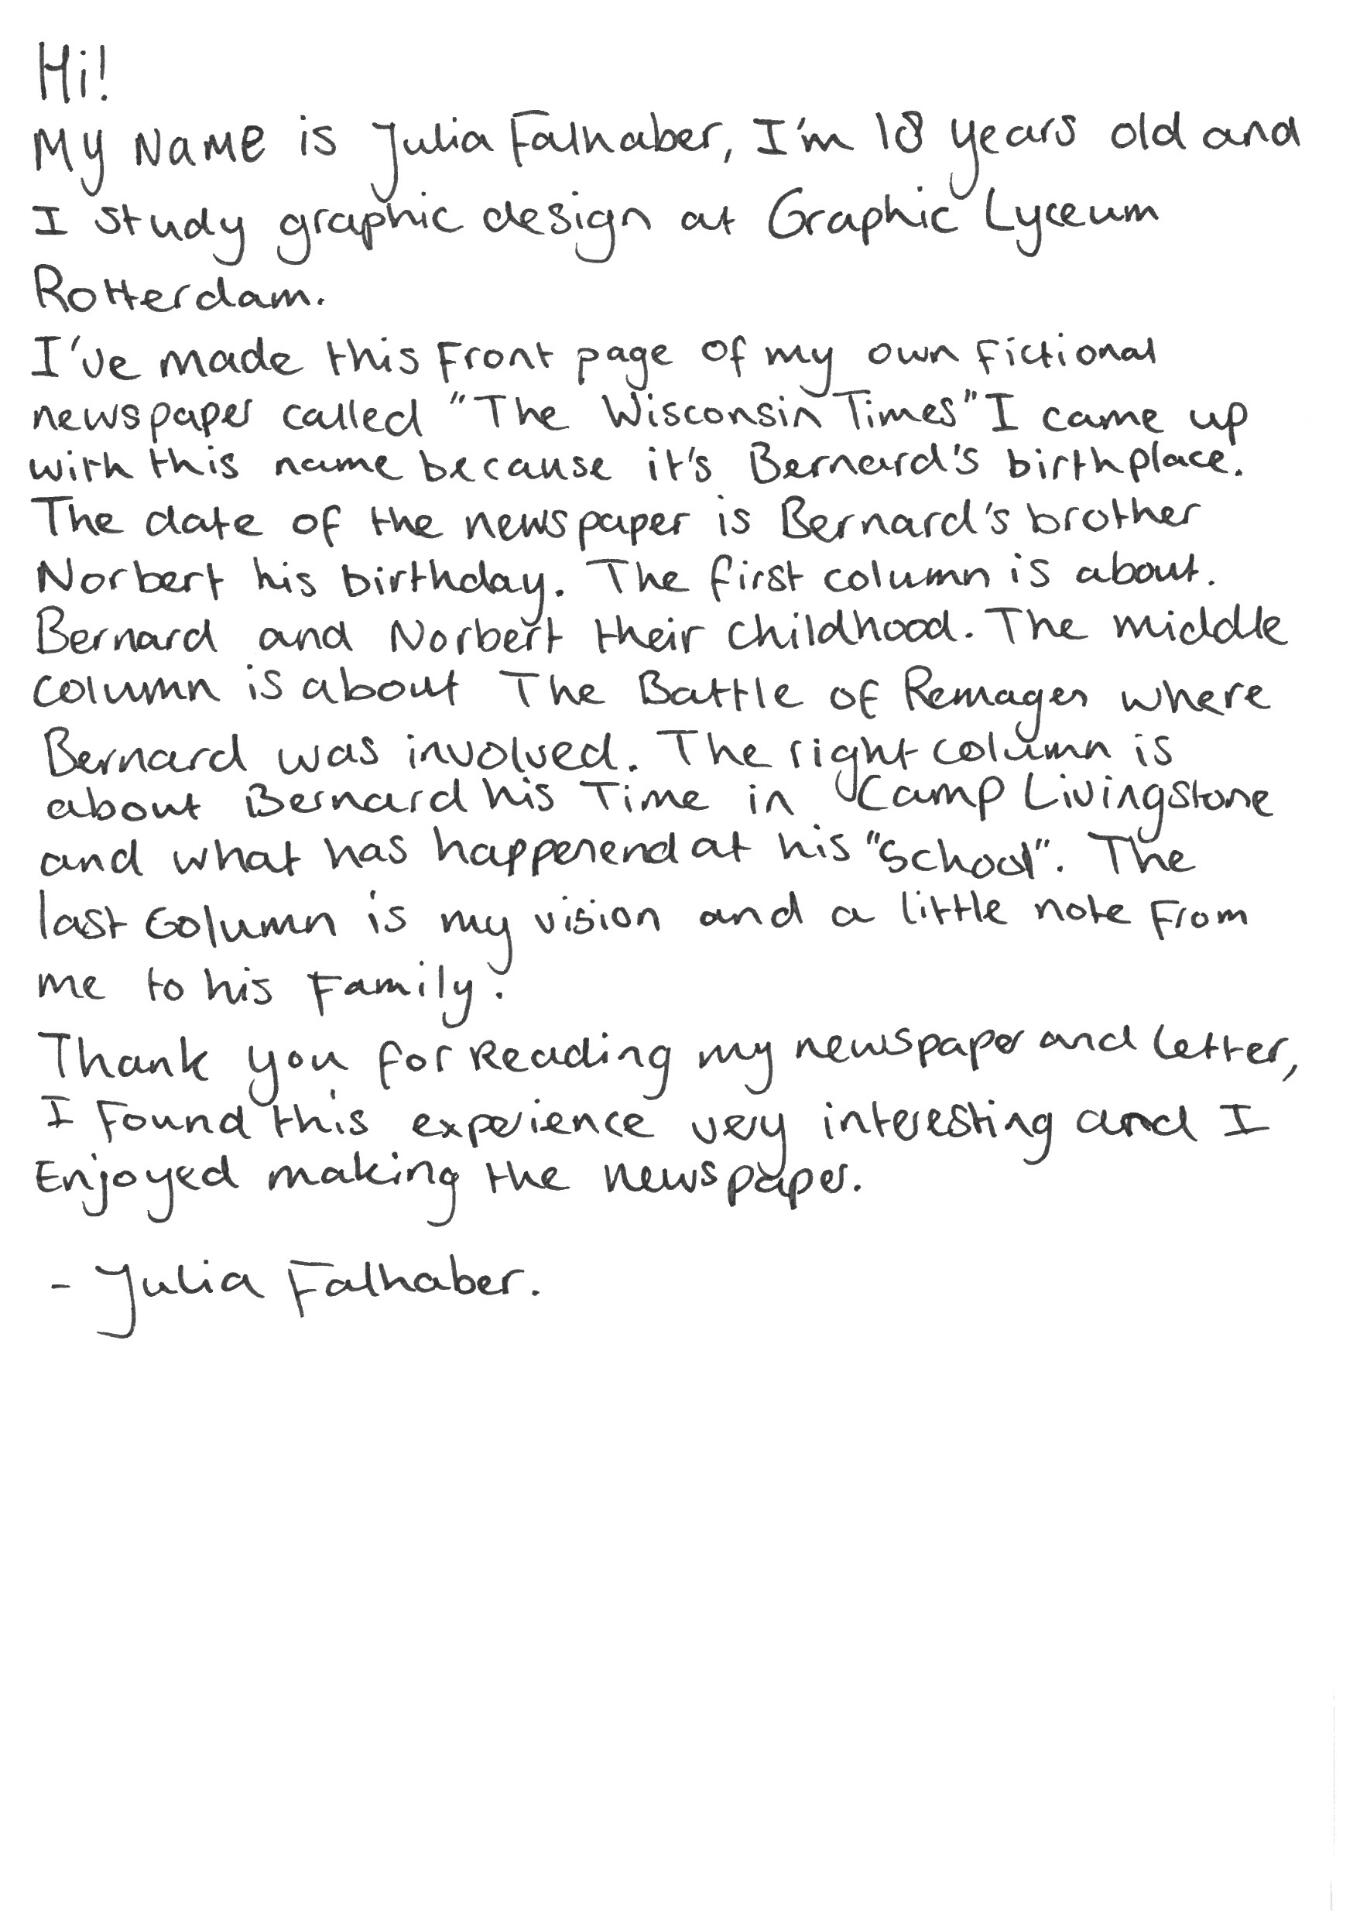 Hi!
My Name is Julia Falhaber, I'm 18 years old and
I study graphic design at Graphic Lyceum
Rotterdam.
I've made this front page of my own fictional
newspaper called "The Wisconsin Times" I came up
with this name because it's Bernard's birthplace.
The date of the newspaper is Bernard's brother
Norbert his birthday. The first column is about.
Bernard and Norbert their childhood. The middle
column is about The Battle of Remagen where
Bernard was involved. The right column is
about Bernard his Time in Camp Livingstone
and what has happenend at his "School". The
last Column is my vision and a little note from
me to his family.
Thank you for Reading my newspaper and letter,
I found this experience very interesting and I
Enjoyed making the newspaper.
- Julia Falhaber.